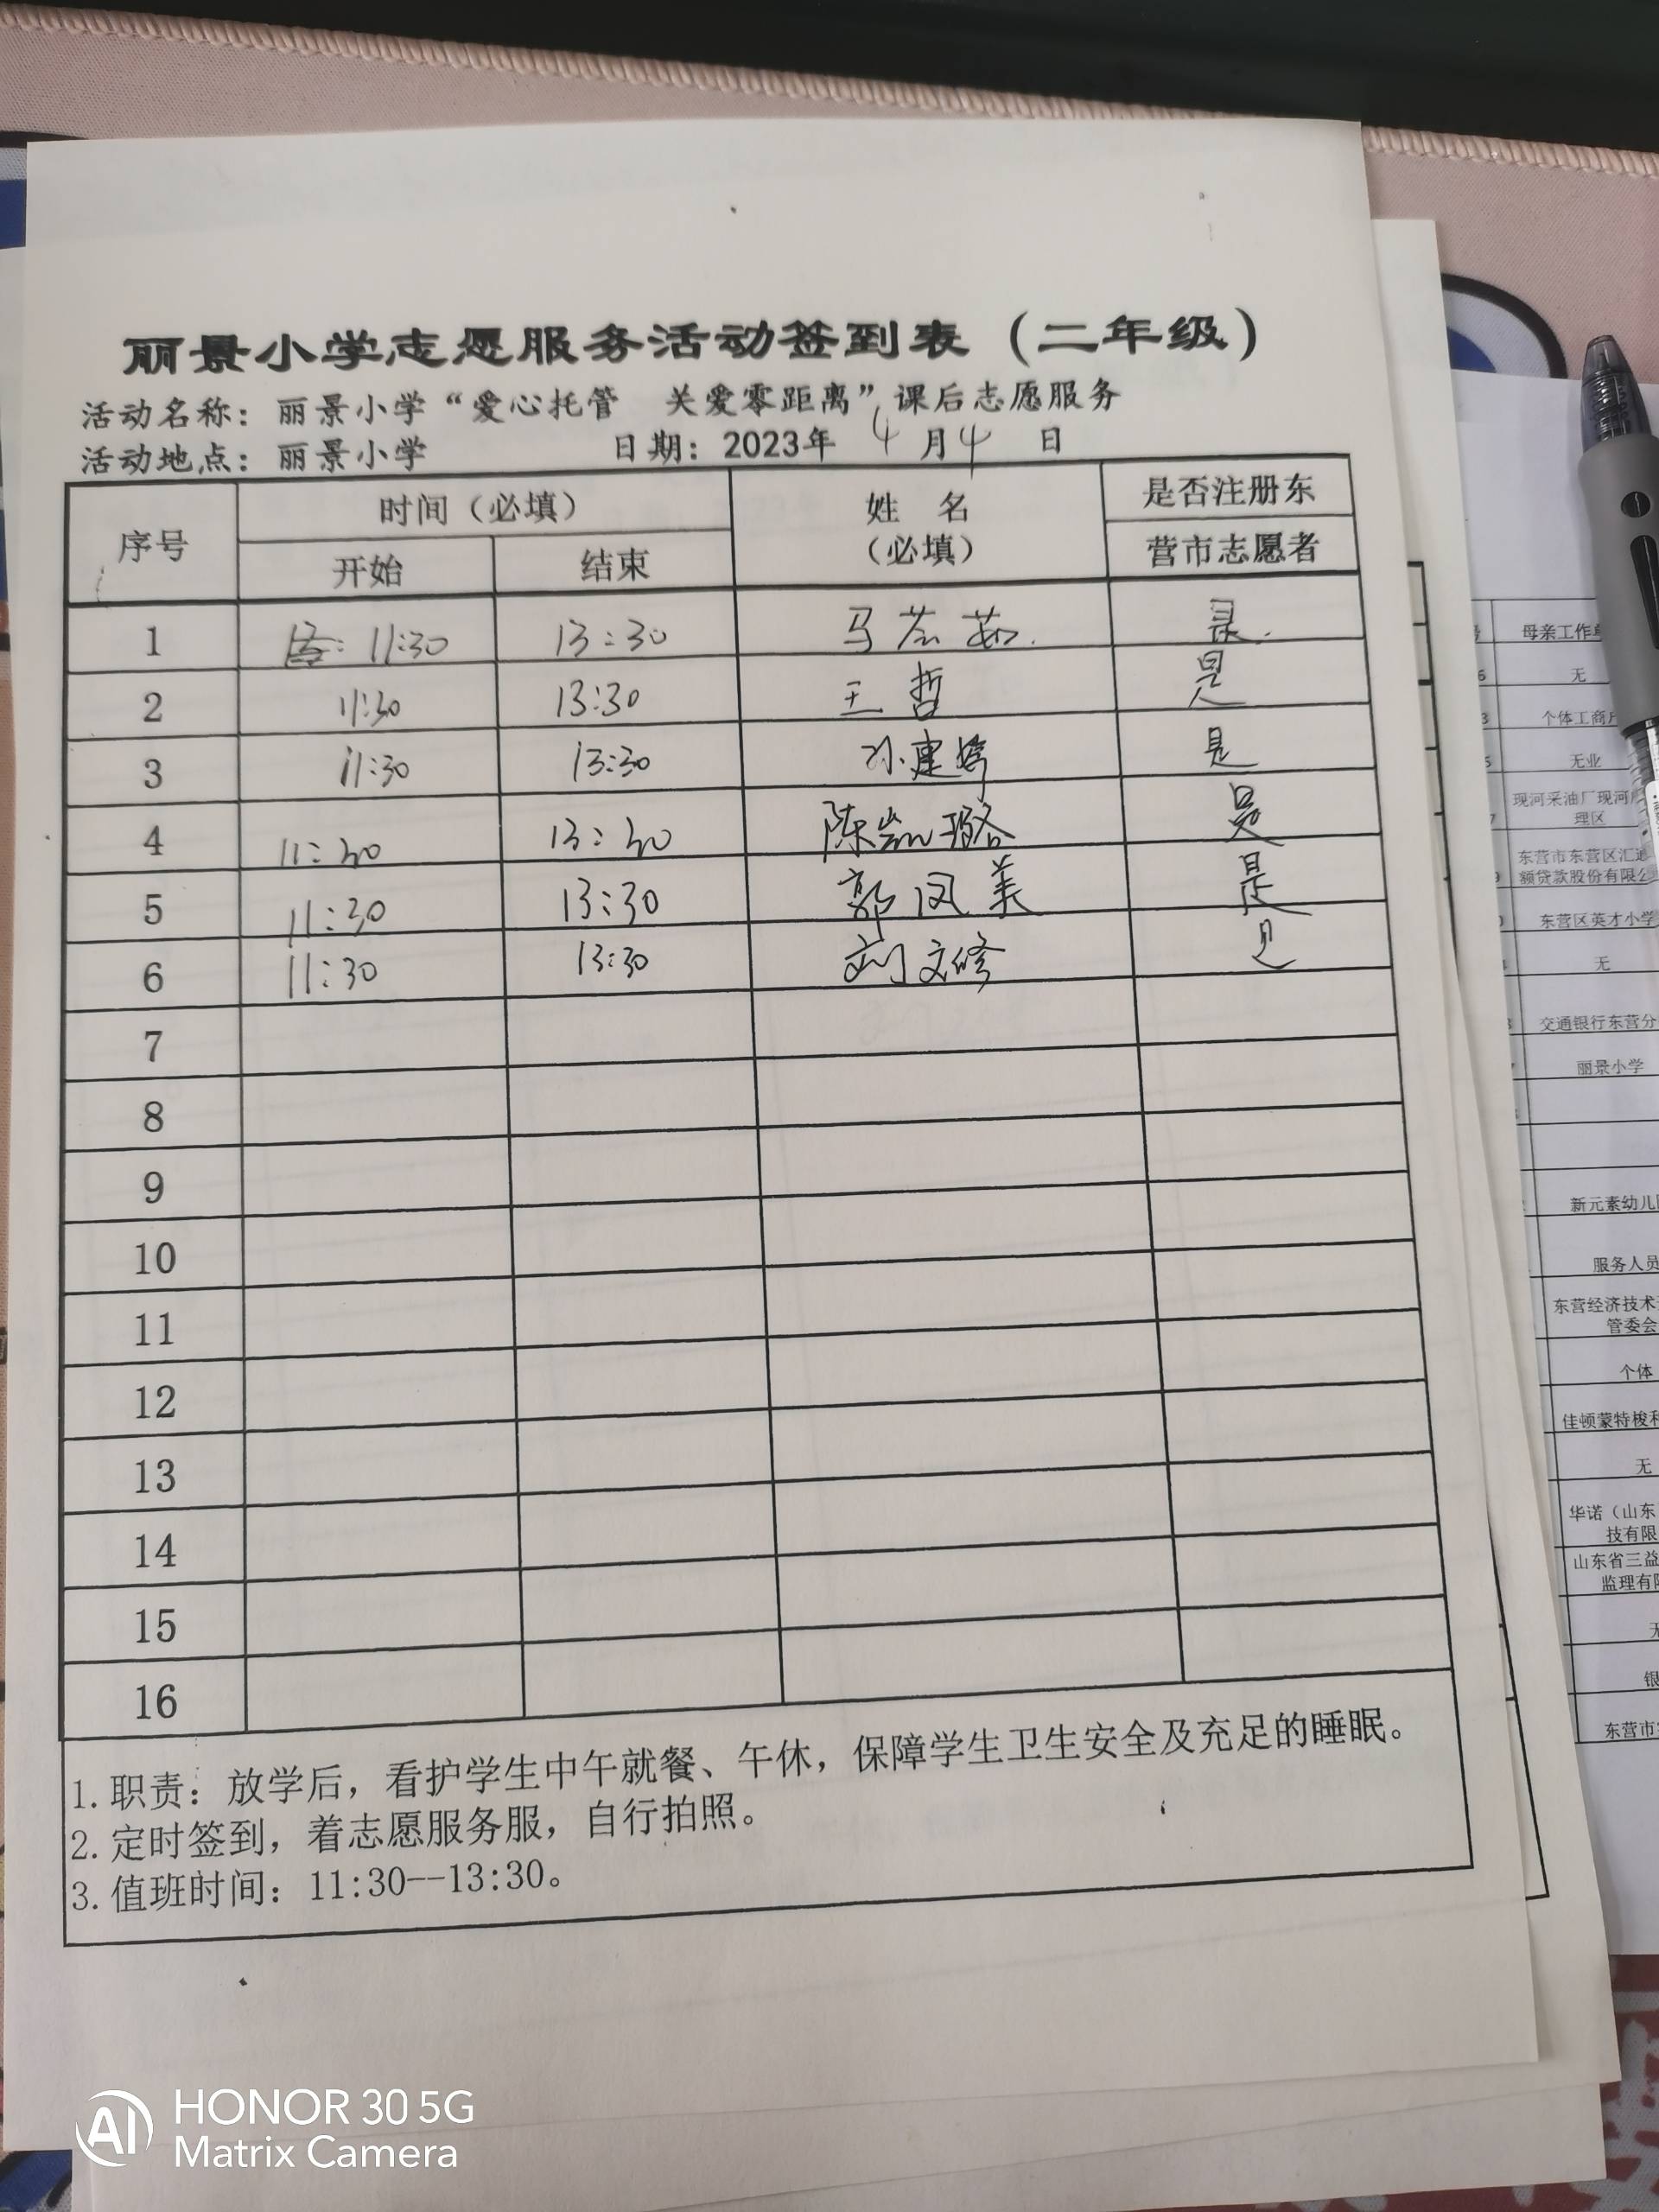 丽景小学志愿服务活动签到表（二年级）
活动名称：丽景小学“爱心托管 关爱零距离”课后志愿服务
活动地点：丽景小学 日期：2023年 4 月 4 日
序号 时间（必填） 姓 名（必填） 是否注册东营市志愿者
开始 结束
1 11:30 13:30 马 茹. 是.
2 11:30 13:30 王 哲 是
3 11:30 13:30 孙建 是
4 11:30 13:30 陈凯璐 是
5 11:30 13:30 郭凤美 是
6 11:30 13:30 刘文修 是
7
8
9
10
11
12
13
14
15
16
1. 职责：放学后，看护学生中午就餐、午休，保障学生卫生安全及充足的睡眠。
2. 定时签到，着志愿服务服，自行拍照。
3. 值班时间：11:30--13:30。
母亲工作
无
个体工商
无业
现河采油厂现河
理区
东营市东营区汇
额贷款股份有限
东营区英才小学
无
交通银行东营分
丽景小学
新元素幼儿
服务人员
东营经济技术
管委会
个体
佳顿蒙特梭
无
华诺（山东
技有限
山东省三益
监理有
银
东营市
AI
HONOR 30 5G
Matrix Camera